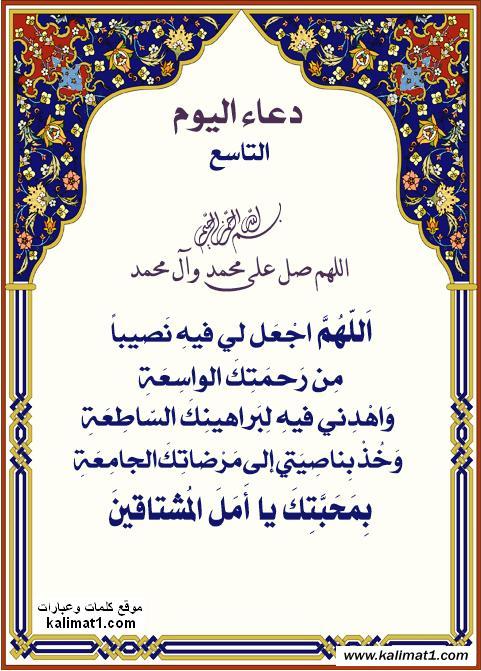 دعاء اليوم
التاسع
بسم الله الرحمن الرحيم
اللهم صل على محمد وآل محمد
اَللّهُمَّ اجْعَل لي فيهِ نَصيباً
مِن رَحمَتِكَ الواسِعَةِ
وَاهْدني فيهِ لِبَراهينِكَ السّاطِعَةِ
وَخُذْ بِناصِيَتي إلى مَرْضاتِكَ الجامِعَةِ
بِمَحَبَّتِكَ يا أَمَلَ المُشتاقينَ
موقع كلمات وعبارات
kalimat1.com
www.kalimat1.com